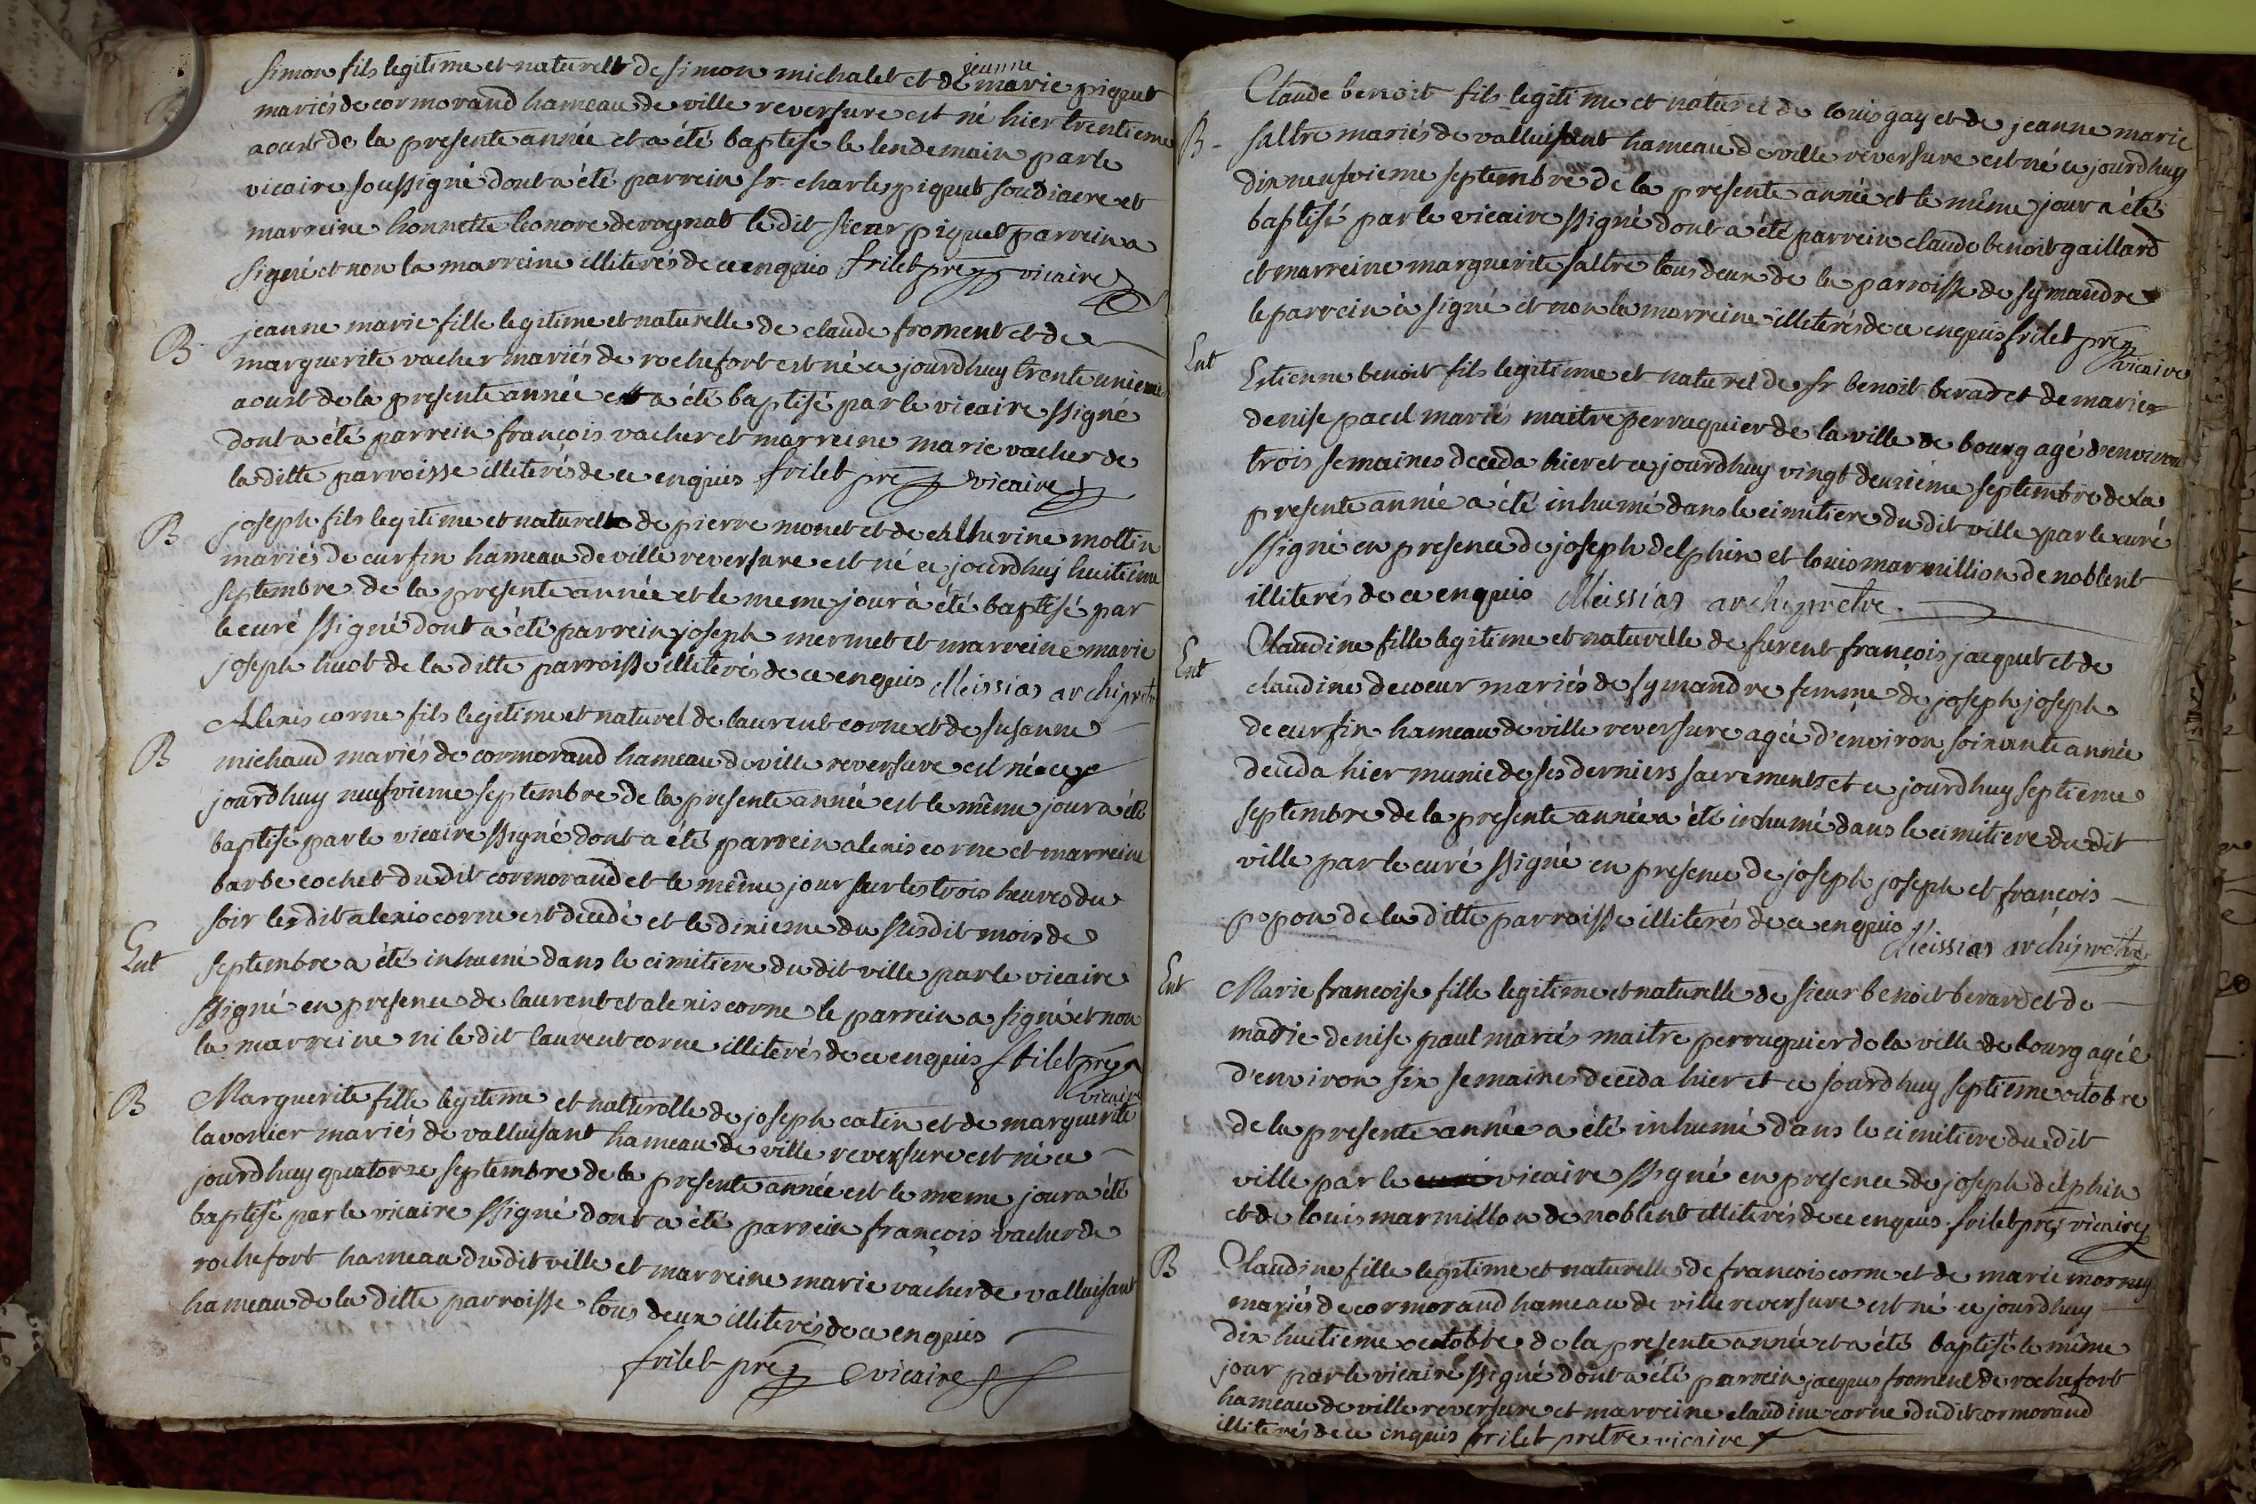 simon fils legitime et naturell de simon michalet et de jeanne marie piquet
mariés de cormorand hameau de ville reversure est né hier trentieme
aoust de la presente année et a été baptisé le lendemain par le
vicaire soussigné dont a été parrein sr charles piquet soudiacre et
marreine honnette leonore derognat le dit sieur piquet parrein a
signé et non la marreine illiterés de ce enquis frilet pre vicaire
B jeanne marie fille legitime et naturelle de claude froment et de
marguerite vacher mariés de rochefort est né ce jourdhuy trente unieme
aoust de la presente année et a été baptisé par le vicaire ssigné
dont a été parrein françois vacher et marreine marie vacher de
la ditte parroisse illiterés de ce enquis frilet pre vicaire
B joseph fils legitime et naturelle de pierre monet et de catherine mottin
mariés de curfin hameau de ville reversure est né ce jourdhuy huitieme
septembre de la presente année et le meme jour à été baptisé par
le curé ssigné dont a été parrein joseph mermet et marreine marie
joseph huot de la ditte parroisse illiterés de ce enquis Meissias archiprêtre
B Alexis corne fils legitime et naturel de laurent corne et de susanne
michaud mariés de cormorand hameau de ville reversure est né ce
jourdhuy neufvieme septembre de la presente année est le même jour a été
baptisé par le vicaire ssigné dont a été parrein alexis corne et marreine
barbe cochet du dit cormorand et le même jour sur les trois heures du
soir le dit alexis corne est decedé et le dixieme du susdit mois de
Ent septembre a été inhumé dans le cimitiere du dit ville par le vicaire
ssigné en presence de laurent et alexis corne le parrein a signé et non
la marreine ni le dit laurent corne illiterés de ce enquis frilet pre
vicaire
B Marguerite fille legitime et naturelle de joseph catin et de marguerite
lavorier mariés de valluisant hameau de ville reversure est né ce
jourdhuy quatorze septembre de la presente année est le meme jour a été
baptisé par le vicaire ssigné dont a été parrein françois vacher de
rochefort hameau du dit ville et marreine marie vacher de valluisant
hameau de la ditte parroisse tous deux illiterés de ce enquis
frilet pre vicaire
Claude benoit fils legitime et naturel de louis gay et de jeanne marie
B saltre mariés de valluisant hameau de ville reversure est né ce jourdhuy
dix neufvieme septembre de la presente année et le même jour a été
baptisé par le vicaire ssigné dont a été parrein claude benoit gaillard
et marreine marguerite saltre tous deux de la parroisse de symandre
le parrein à signé et non la marreine illiterés de ce enquis frilet pre
vicaire
Ent Estienne benoit fils legitime et naturel de sr benoit berard et de marie
denise paul mariés maitre perruquier de la ville de bourg agé d'environ
trois semaines deceda hier et ce jourdhuy vingt deuxiéme septembre de la
presente année a été inhumé dans le cimitiere du dit ville par le curé
ssigné en presence de joseph delphin et louis marmillion de noblent
illiterés de ce enquis Meissias archiprêtre
Ent Claudine fille legitime et naturelle de furent françois jacquet et de
claudine decoeur mariés de symandre femme de joseph joseph
de curfin hameau de ville reversure agée d'environ soixante année
deceda hier munie de ses derniers sacrements et ce jourdhuy septieme
septembre de la presente année a été inhumé dans le cimitiere du dit
ville par le curé ssigné en presence de joseph joseph et françois
popon de la ditte parroisse illiterés de ce enquis
Meissias archiprêtre
Ent Marie francoise fille legitime et naturelle de sieur benoit berard et de
marie denise paul mariés maitre perruquier de la ville de bourg agéé
d'environ six semaines deceda hier et ce jourdhuy septieme octobre
de la presente année a été inhumé dans le cimitiere du dit
ville par le vicaire ssigné en presence de joseph delphin
et de louis marmillon de noblent illiterés de ce enquis frilet pre vicaire
B Claudine fille legitime et naturelle de francois corne et de marie mornay
mariés de cormorand hameau de ville reversure est né ce jourdhuy
dix huitieme octobre de la presente année et a été baptisé le même
jour par le vicaire ssigné dont a été parrein jacques froment de rochefort
hameau de ville reversure et marreine claudine corne du dit cormorand
illiterés de ce enquis frilet pretre vicaire